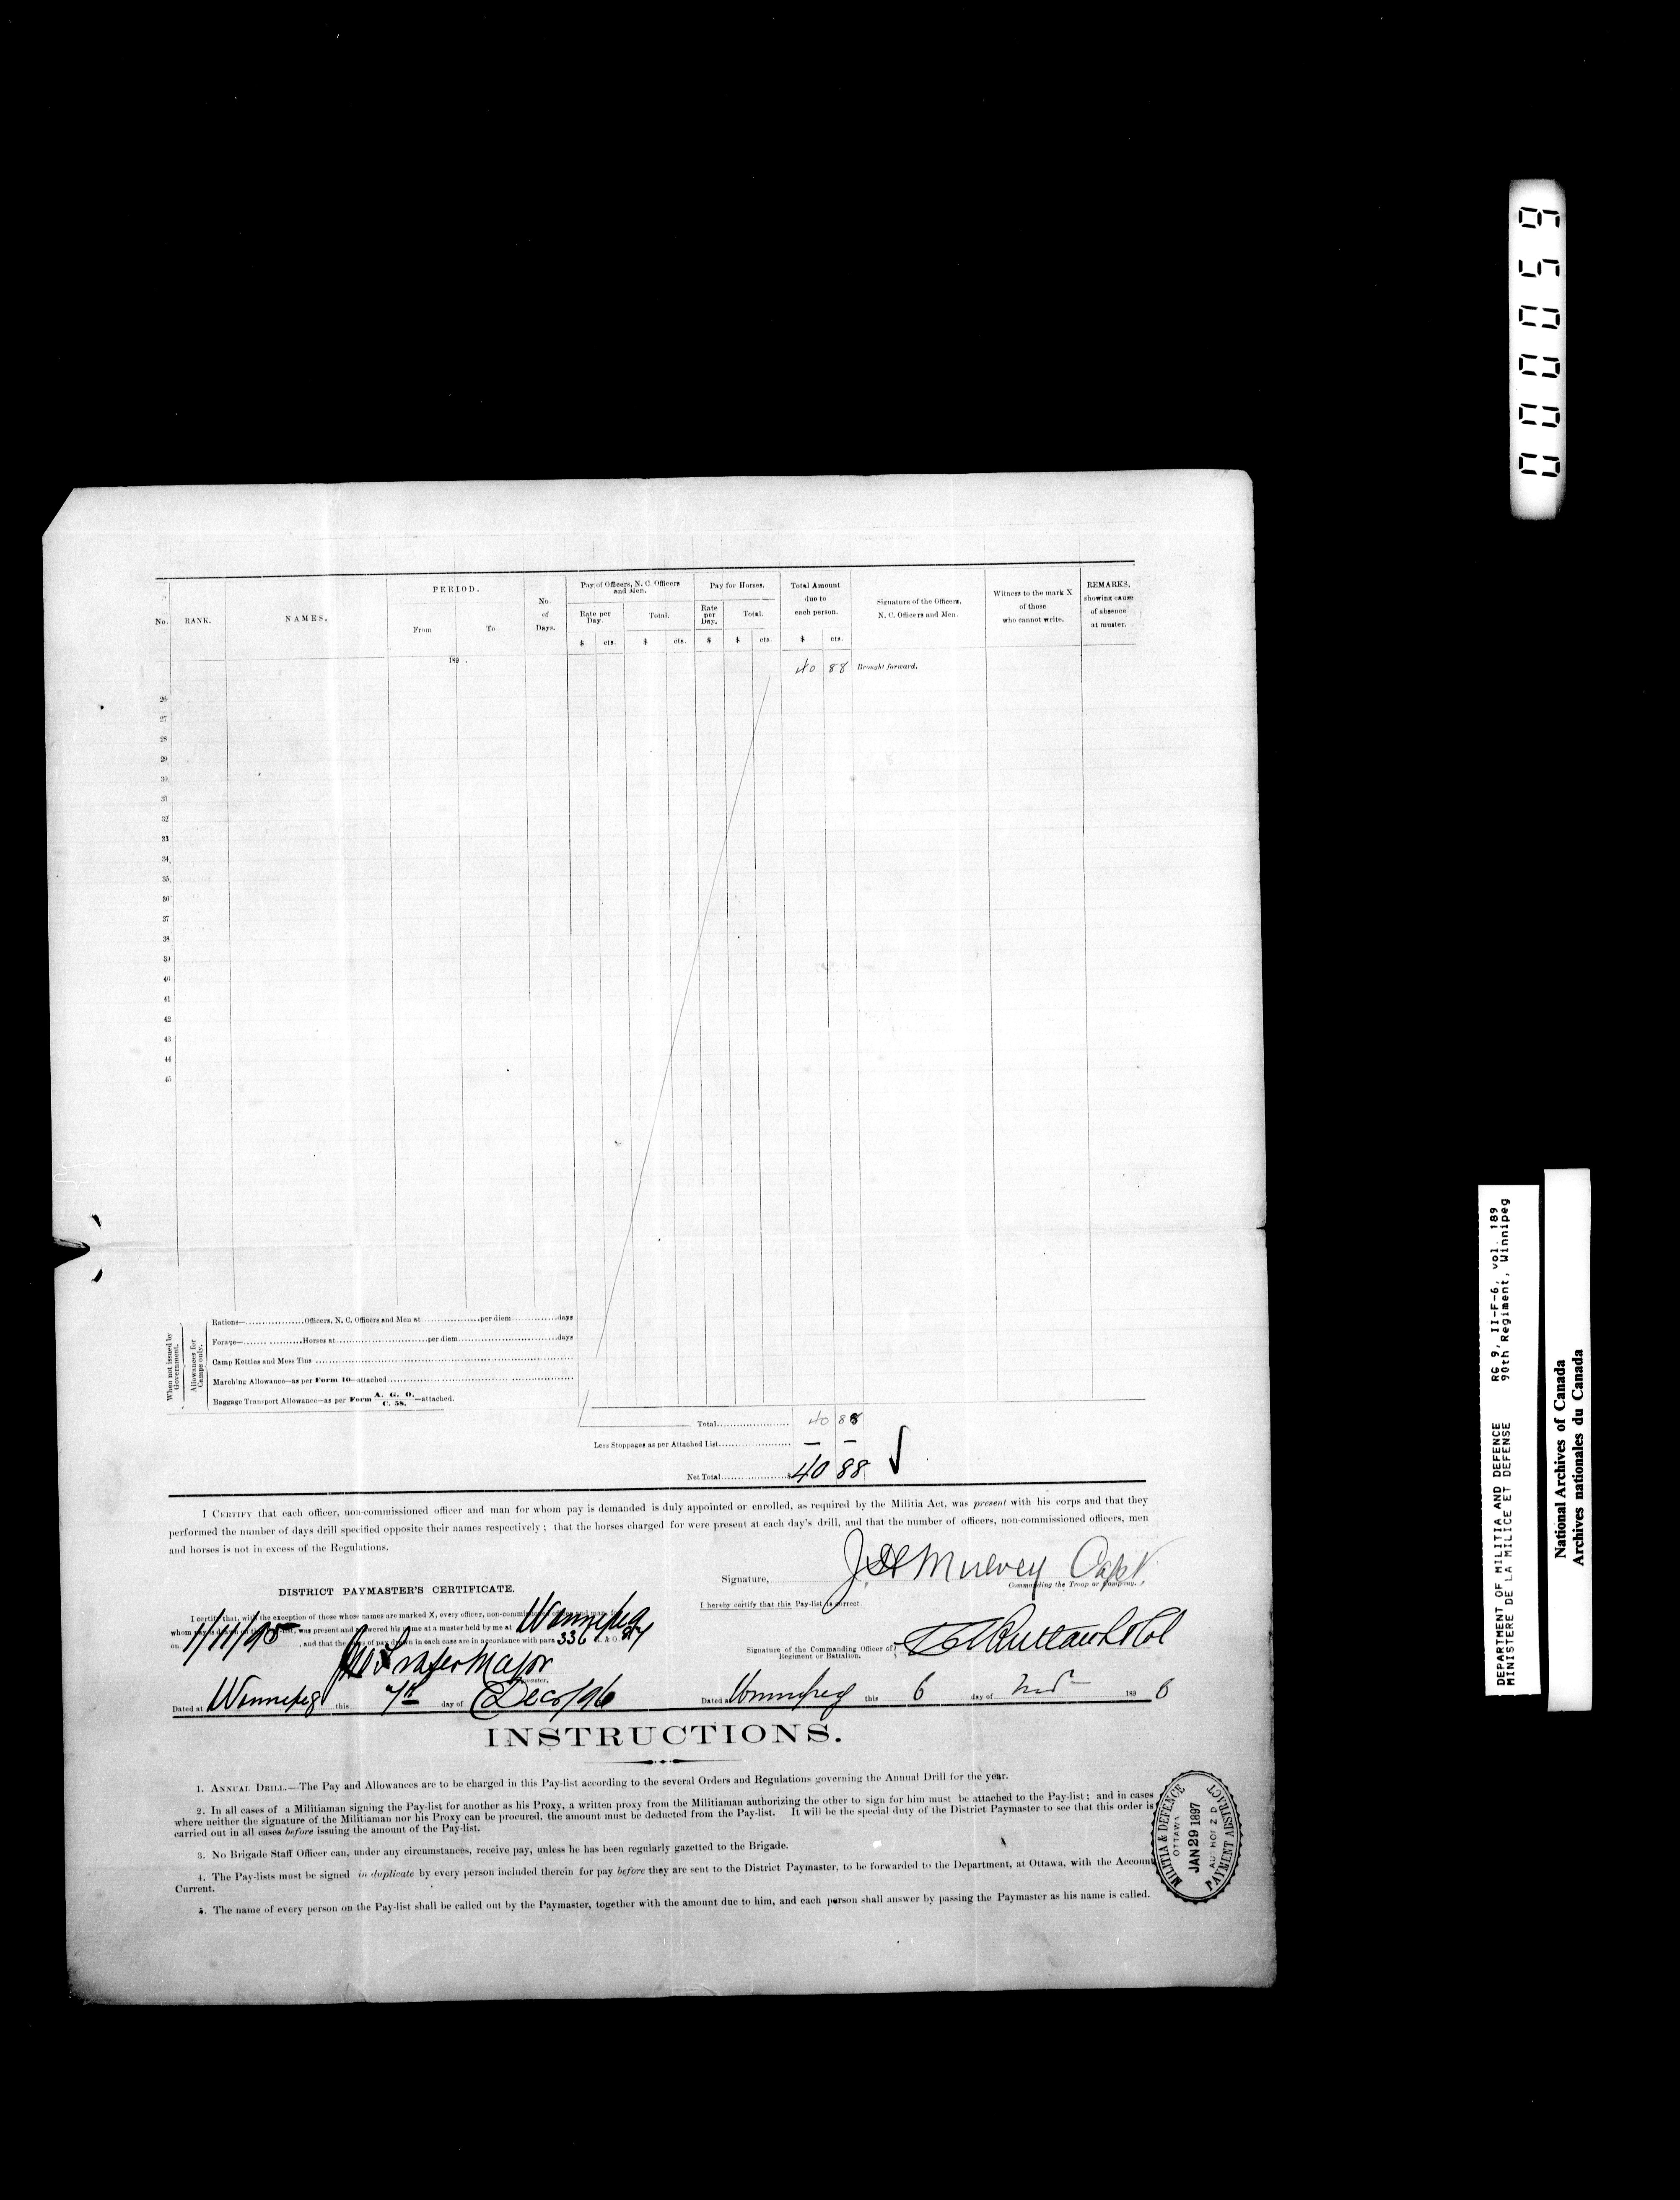 No. RANK. NAMES. PERIOD. From To No. of Days. Pay of Officers, N. C. Officers and Men. Rate per Day. Total. Pay for Horses. Rate per Day. Total. Total Amount due to each person. Signature of the Officers, N. C. Officers and Men. Witness to the mark X of those who cannot write. REMARKS, showing cause of absence at muster.
$ cts. $ cts. $ $ cts. $ cts.
189 .
40 88 Brought forward.
26
27
28
29
30
31
32
33
34
35
36
37
38
39
40
41
42
43
44
45
When not issued by Government.
Allowances for Camps only.
Rations—..................Officers, N. C. Officers and Men at..................per diem..............days
Forage—..................Horses at............................per diem..............................days
Camp Kettles and Mess Tins
Marching Allowance—as per Form 10—attached
Baggage Transport Allowance—as per Form A. G. O. C. 58.—attached.
Total 40 88
Less Stoppages as per Attached List — —
Net Total $40 88 √
I CERTIFY that each officer, non-commissioned officer and man for whom pay is demanded is duly appointed or enrolled, as required by the Militia Act, was present with his corps and that they
performed the number of days drill specified opposite their names respectively ; that the horses charged for were present at each day's drill, and that the number of officers, non-commissioned officers, men
and horses is not in excess of the Regulations.
Signature, Mulvey Capt
Commanding the Troop or Company.
I hereby certify that this Pay-list is correct.
Signature of the Commanding Officer of Regiment or Battalion.
Dated at Winnipeg this 6 day of 189 6
DISTRICT PAYMASTER'S CERTIFICATE.
I certify that, with the exception of those whose names are marked X, every officer, non-commissioned officer and man, for
whom pay is drawn on this Pay-list, was present and answered his name at a muster held by me at Winnipeg
on , and that the rates of pay drawn in each case are in accordance with para 336 R. & O.
Major
Paymaster.
Dated at Winnipeg this 7th day of Dec /96
INSTRUCTIONS.
1. ANNUAL DRILL.—The Pay and Allowances are to be charged in this Pay-list according to the several Orders and Regulations governing the Annual Drill for the year.
2. In all cases of a Militiaman signing the Pay-list for another as his Proxy, a written proxy from the Militiaman authorizing the other to sign for him must be attached to the Pay-list ; and in cases
where neither the signature of the Militiaman nor his Proxy can be procured, the amount must be deducted from the Pay-list. It will be the special duty of the District Paymaster to see that this order is
carried out in all cases before issuing the amount of the Pay-list.
3. No Brigade Staff Officer can, under any circumstances, receive pay, unless he has been regularly gazetted to the Brigade.
4. The Pay-lists must be signed in duplicate by every person included therein for pay before they are sent to the District Paymaster, to be forwarded to the Department, at Ottawa, with the Account
Current.
5. The name of every person on the Pay-list shall be called out by the Paymaster, together with the amount due to him, and each person shall answer by passing the Paymaster as his name is called.
MILITIA & DEFENCE
OTTAWA
JAN 29 1897
PAYMENT ABSTRACT
000059
DEPARTMENT OF MILITIA AND DEFENCE RG 9, II-F-6, vol. 189
MINISTERE DE LA MILICE ET DEFENSE 90th Regiment, Winnipeg
National Archives of Canada
Archives nationales du Canada